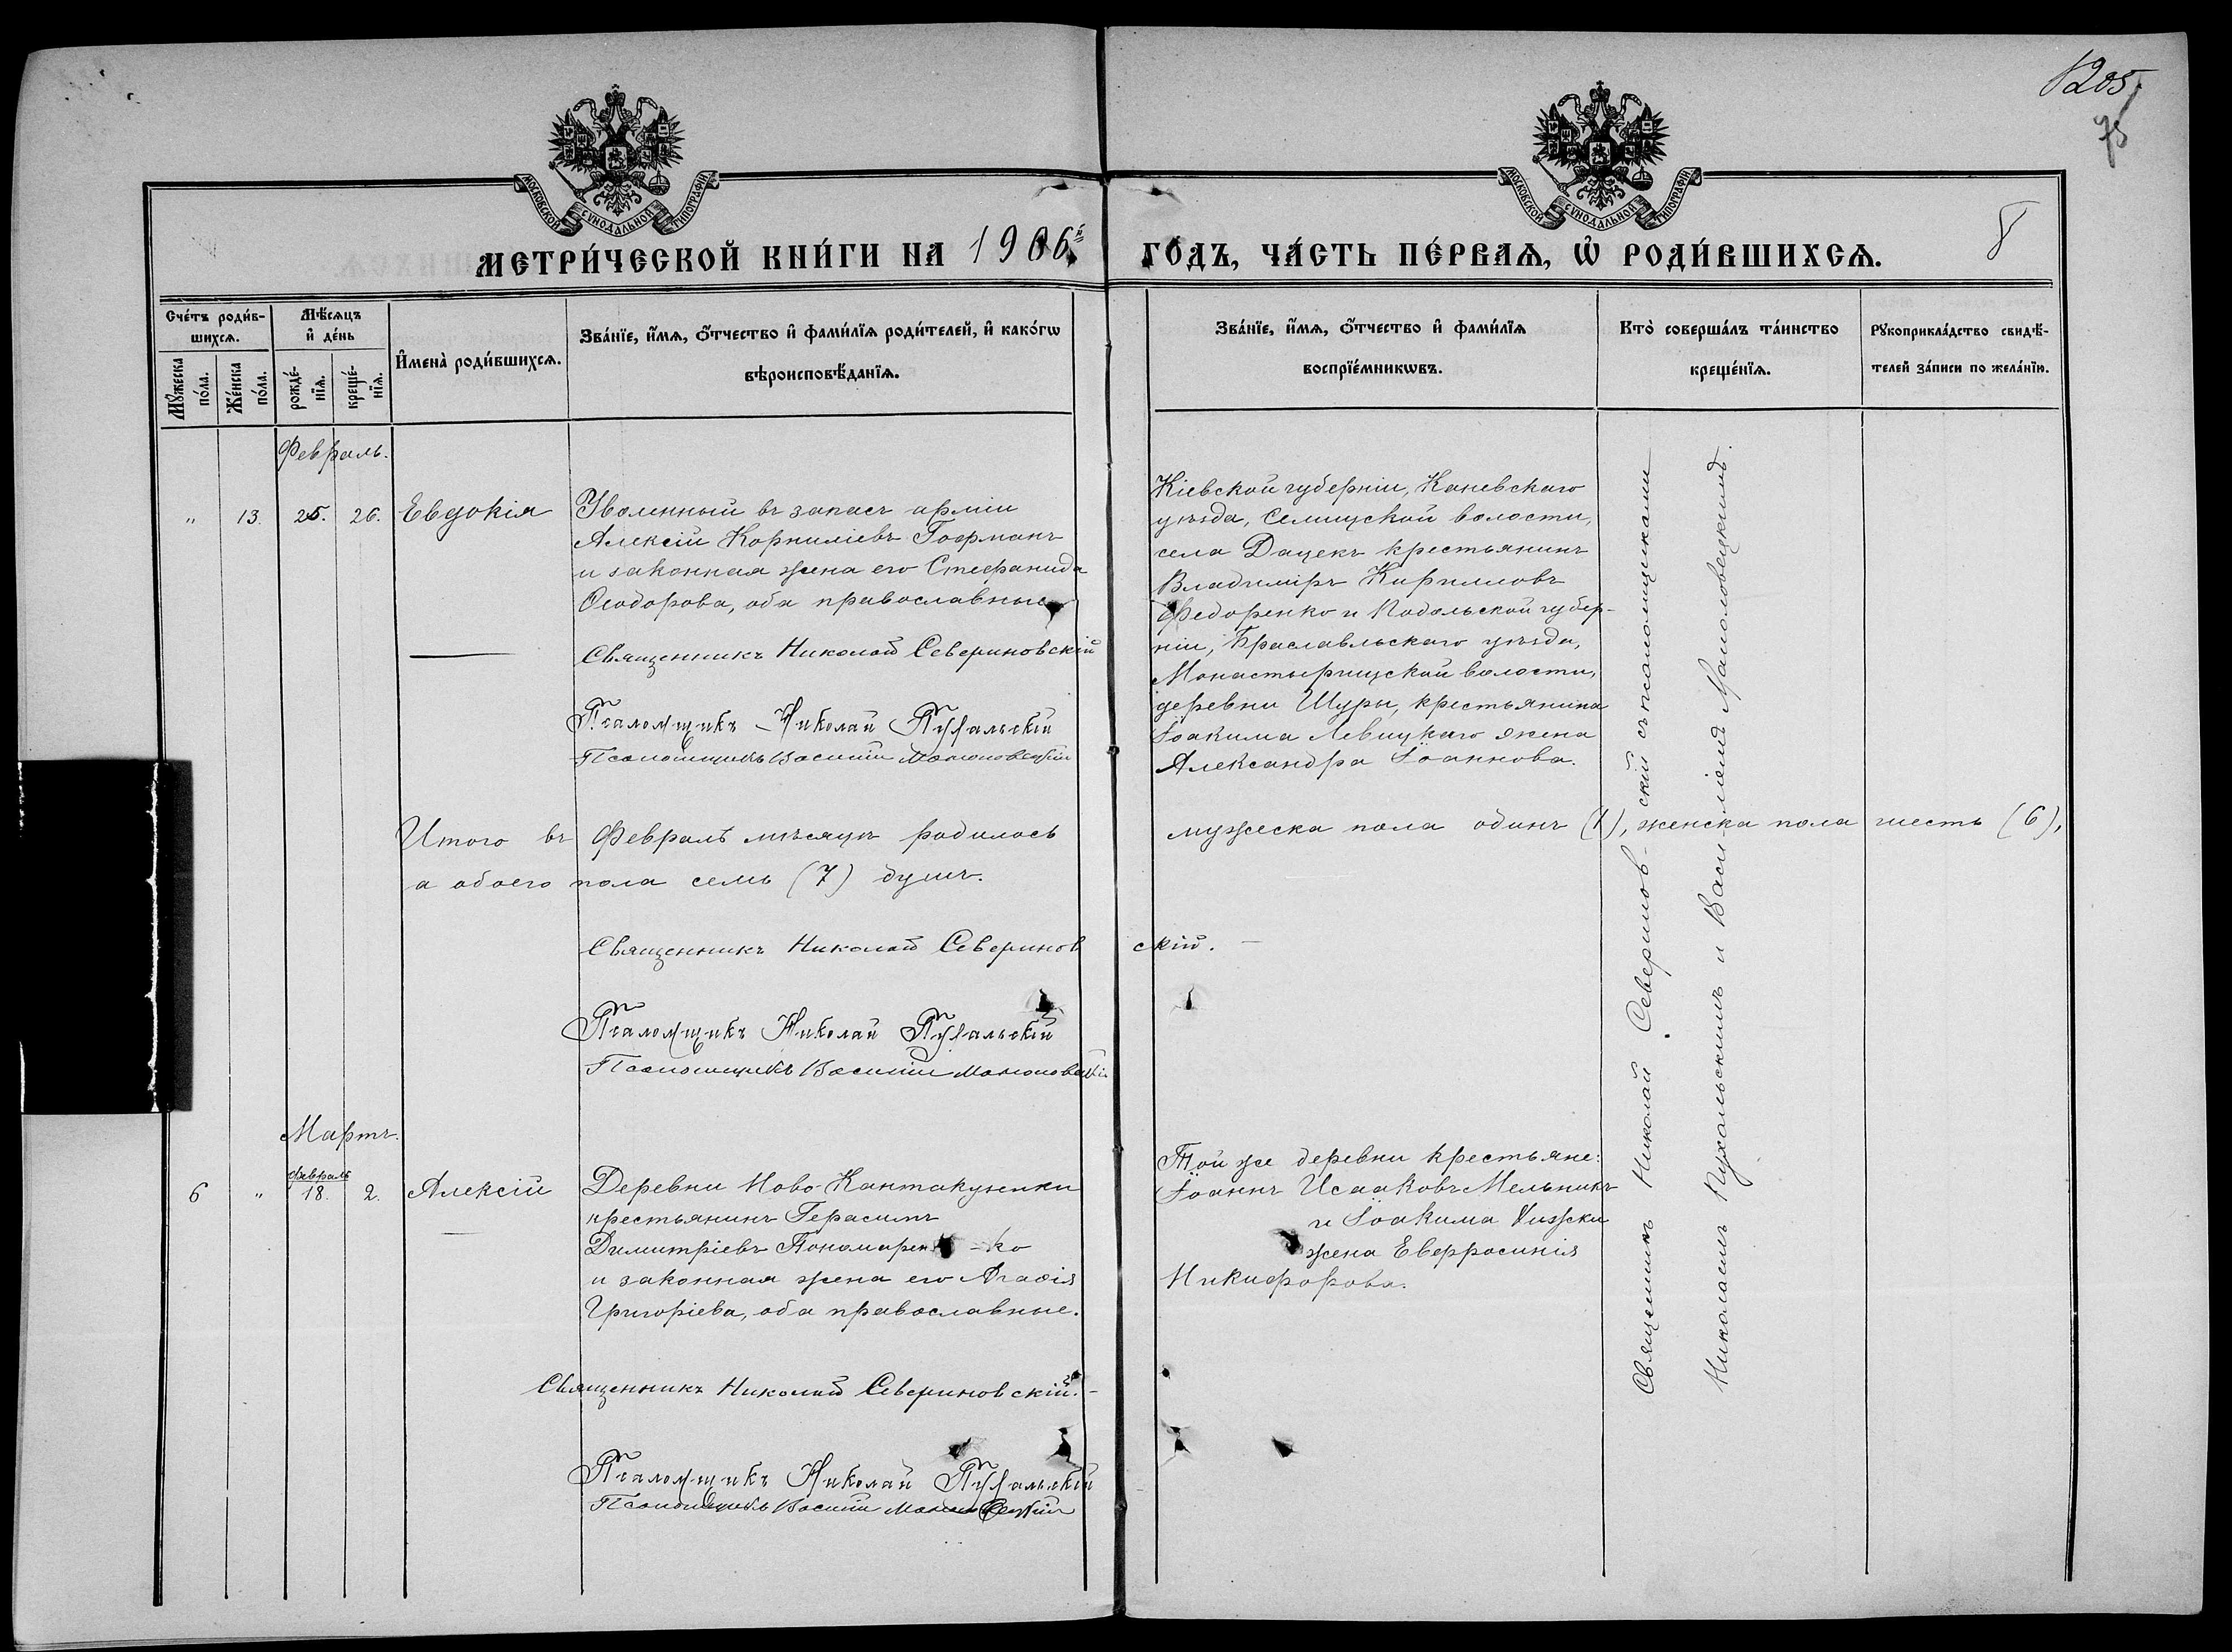 1205
75
МОСКОВСКОЙ СУНОДАЛЬНОЙ ТИПОГРАФІИ
МОСКОВСКОЙ СУНОДАЛЬНОЙ ТИПОГРАФІИ
МЕТРИ́ЧЕСКОЙ КНИ́ГИ НА 1906й
ГО́ДЪ, ЧА́СТЬ ПЕ́РВАѦ, Ѡ҆ РОДИ́ВШИХСѦ.
8
Сче́тъ роди́в-
шихсѧ.
Му́жеска
по́ла.
Же́нска
по́ла.
Мѣ́сѧцъ
и҆ де́нь
рожде́-
нїѧ.
креще́-
нїѧ.
И҆мена̀ роди́вшихсѧ.
Зва́нїе, и҆́мѧ, ѻ҆́тчество и҆ фами́лїѧ роди́телей, и҆ како́гѡ
вѣроисповѣ́данїѧ.
Зва́нїе, и҆́мѧ, ѻ҆́тчество и҆ фами́лїѧ
воспрїе́мникѡвъ.
Кто̀ соверша́лъ та́инство
креще́нїѧ.
Рꙋкоприкла́дство свидѣ́-
телей за́писи по жела́нїю.
Февраль.
" 13. 25. 26. Евдокія
Уволенный въ запасъ арміи
Алексій Корниліевъ Гофманъ
и законная жена его Стефанида
Ѳеодорова, оба православные
Священникъ Николай Севериновскій
Псаломщикъ Николай Пухальскій
Псаломщикъ Василій Маньковецкій
Кіевской губерніи, Каневскаго
уѣзда, Селищской волости,
села Дацекъ крестьянинъ
Владиміръ Кирилловъ
Федоренко и Подольской губер-
ніи, Браславльскаго уѣзда,
Монастырищской волости,
деревни Шуры, крестьянина
Іоакима Левицкаго жена
Александра Іоаннова.
Итого въ Февралѣ мѣсяцѣ родилось мужеска пола одинъ (1), женска пола шесть (6),
а обоего пола семь (7) душъ.
Священникъ Николай Севериновскій.
Псаломщикъ Николай Пухальскій
Псаломщикъ Василій
Мартъ.
6 " Февраль 18. 2. Алексій
Деревни Ново-Кантакузенки
крестьянинъ Герасимъ
Димитріевъ Пономарен-ко
и законная жена его Агаѳія
Григоріева, оба православные.
Священникъ Николай Севериновскій.
Псаломщикъ Николай Пухальскій
Псаломщикъ Василій
Той же деревни крестьяне:
Іоаннъ Исааковъ Мельникъ
и Іоакима
жена Евфросинія
Никифорова.
Священникъ Николай Севериновскій съ псаломщиками
Николаемъ Пухальскимъ и Василіемъ